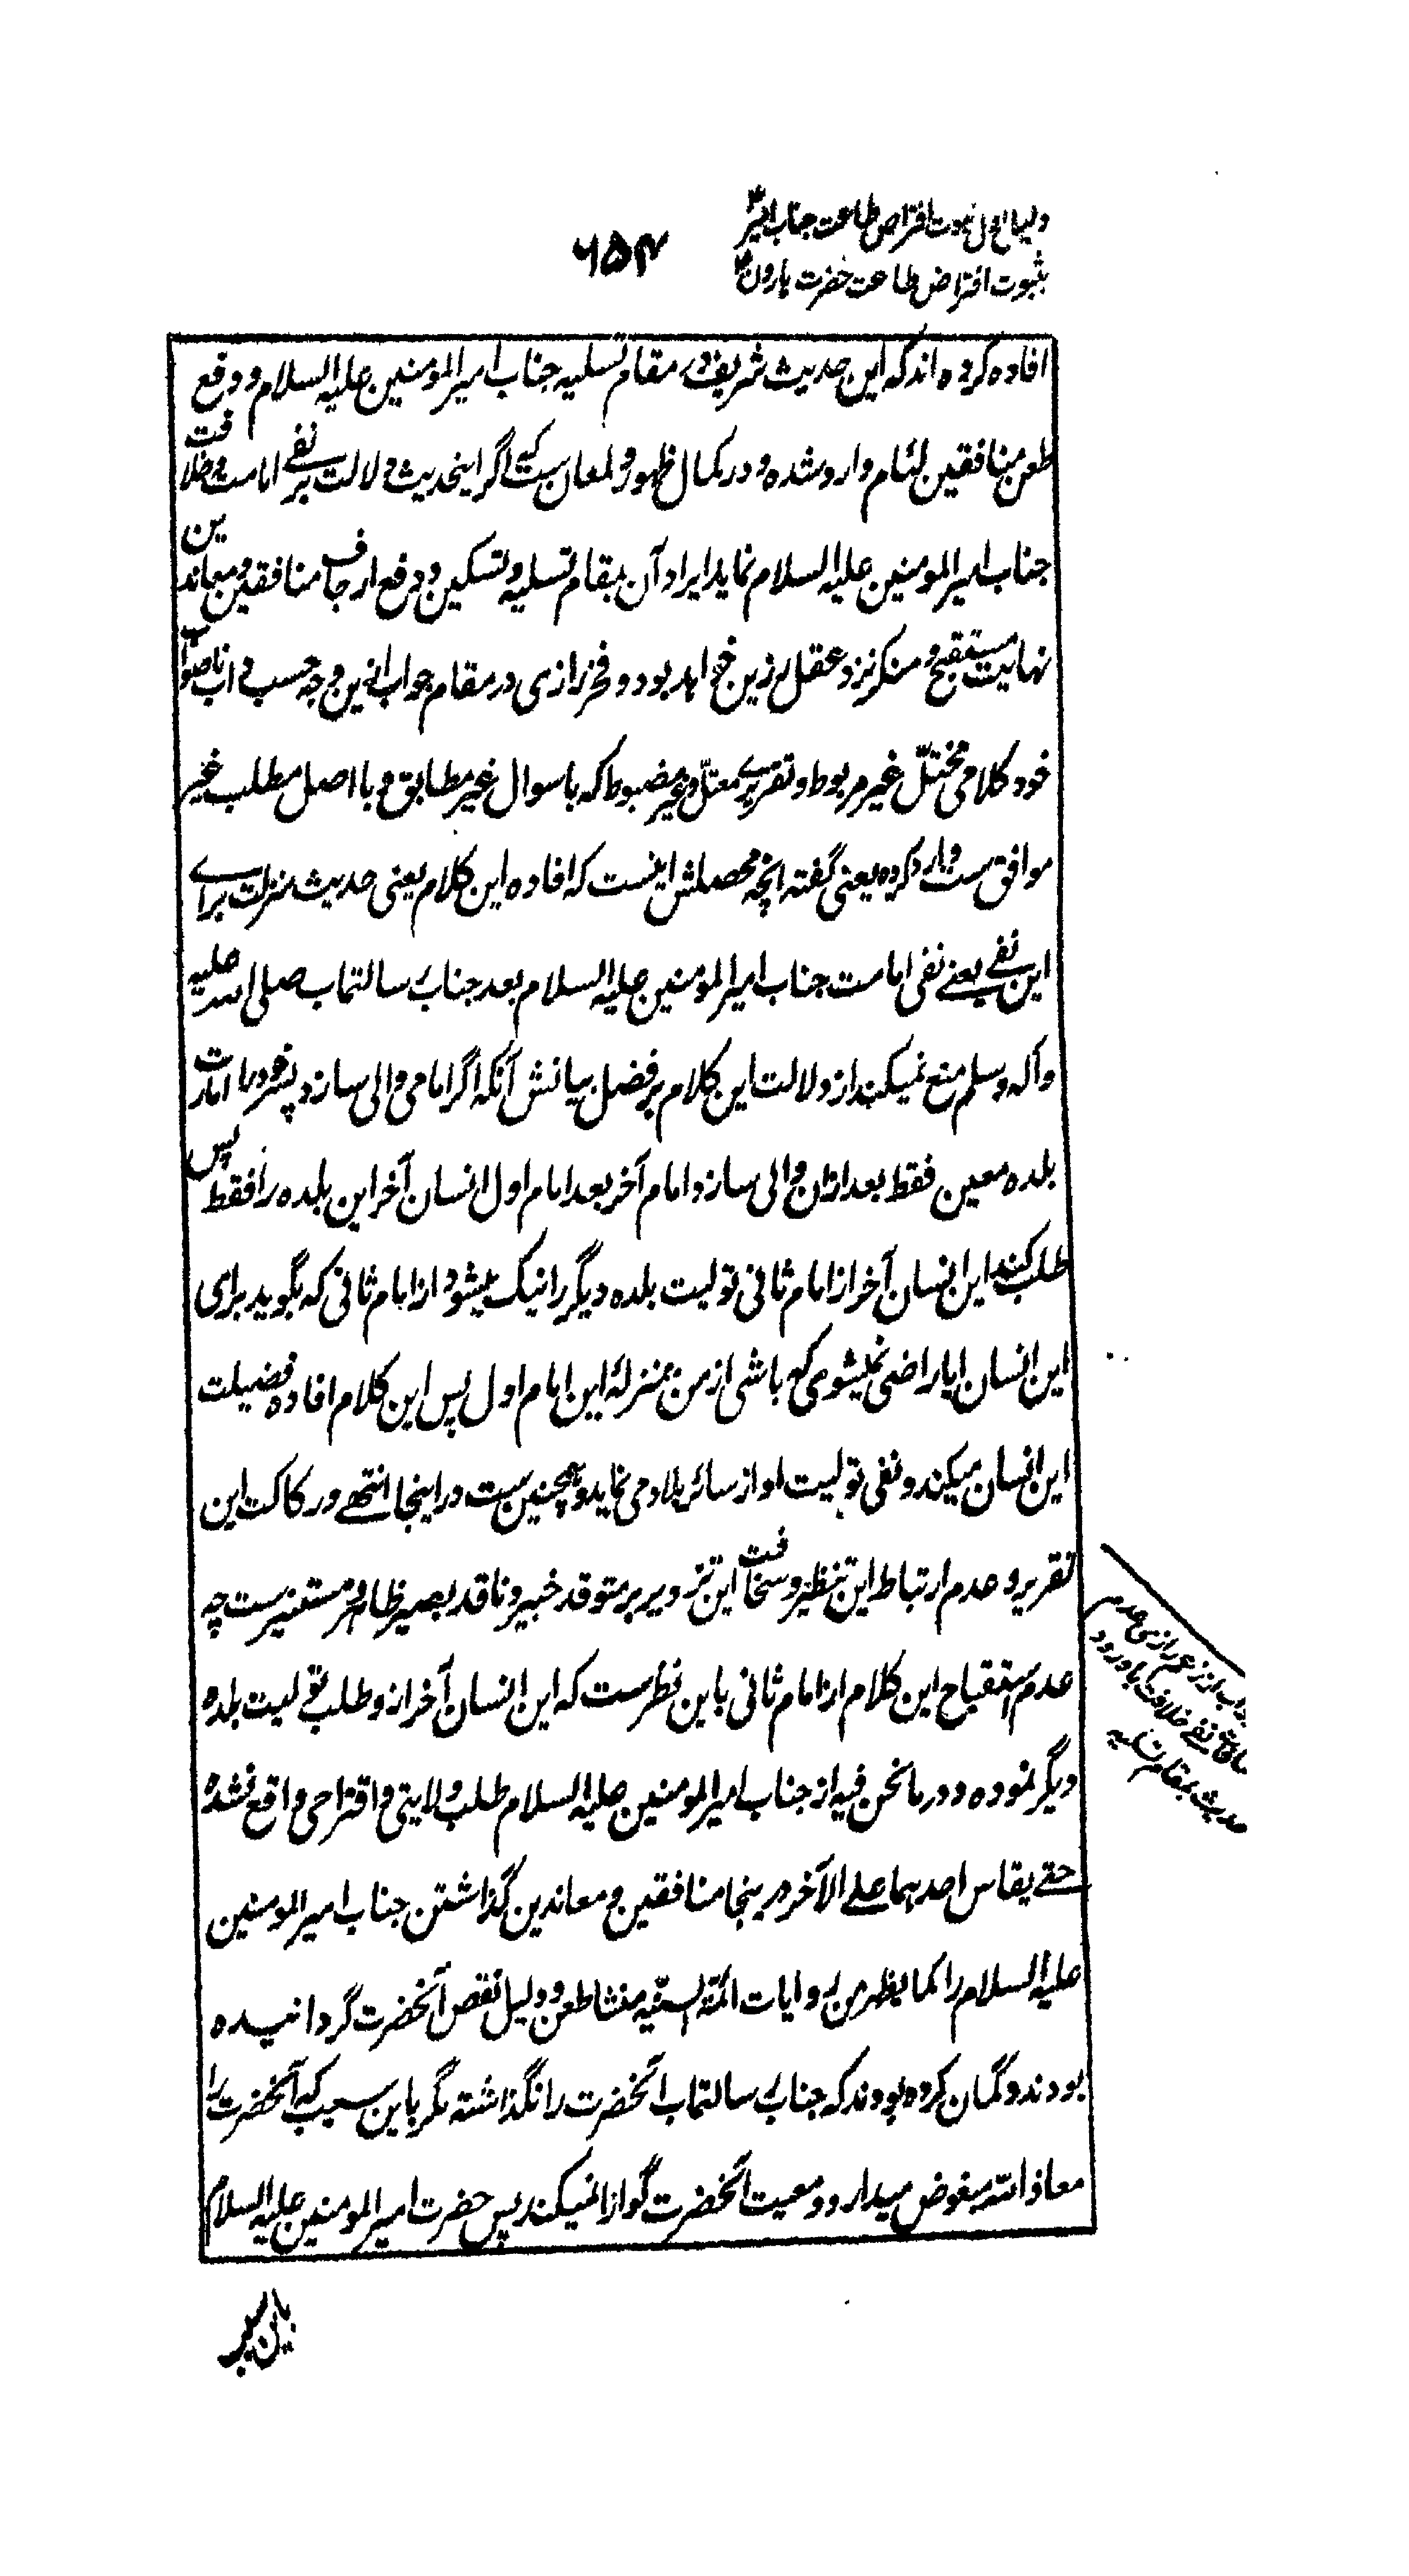 دلیل اول ثبوت افتراض طاعت جناب امیرؑ
بثبوت افتراض طاعت حضرت هارونؑ
۶۵۴
افاده کرده اند که این حدیث شریف در مقام تسلیه جناب امیرالمومنین علیه السلام و دفع
طعن منافقین لئام وارد شده و در کمال ظهور و لمعان ست که اگر اینحدیث دلالت بر نفی امامت و خلافت
جناب امیرالمومنین علیه السلام نماید ایراد آن بمقام تسلیه و تسکین و دفع ارجاف منافقین و معاندین
نهایت مستقبح و منکر نزد عقل رزین خواهد بود و فخر رازی در مقام جواب ازین وجه حسب داب ناصواب
خود کلامی مختلّ غیر مربوط و تقریری معتلّ و غیر مضبوط که با سوال غیر مطابق و با اصل مطلب غیر
موافق ست وارد کرده یعنی گفته انچه محصلش اینست که افاده این کلام یعنی حدیث منزلت برای
این نفی یعنی نفی امامت جناب امیرالمومنین علیه السلام بعد جناب رسالتماب صلی الله علیه
و آله و سلم منع نمیکند از دلالت این کلام بر فضل بیانش آنکه اگر امامی والی سازد پسر خود را امارت
بلده معین فقط بعد ازان والی سازد امام آخر بعد امام اول انسان آخر این بلده را فقط پس
طلب کند این انسان آخر از امام ثانی تولیت بلده دیگر را نیک میشود از امام ثانی که بگوید برای
این انسان ایا راضی نمیشوی که باشی از من بمنزلۀ این امام اول پس این کلام افاده فضیلت
این انسان میکند و نفی تولیت او از سائر بلاد می نماید و همچنین ست در اینجا انتهی و رکاکت این
تقریر و عدم ارتباط این تنظیر و سخافت این تزویر بر متوقد خبیر و ناقد بصیر ظاهر و مستنیر ست چه
عدم استقباح این کلام از امام ثانی باین نظر ست که این انسان آخر ازو طلب تولیت بلده
دیگر نموده و در ما نحن فیه از جناب امیرالمومنین علیه السلام طلب ولایتی و اقتراحی واقع نشده
حتی یقاس احدهما علی الآخر درینجا منافقین و معاندین گذاشتن جناب امیرالمومنین
علیه السلام را کما یظهر من روایات ائمة السنّیه منشا طعن و دلیل نقص آنحضرت گردانیده
بودند و گمان کرده بودند که جناب رسالتماب آنحضرت را نگذاشته مگر باین سبب که آنحضرت را
معاذ الله مبغوض میدارد و معیت آنحضرت گوارا نمیکند پس حضرت امیرالمومنین علیه السلام
جواب از زعم رازی عدم
منافات نفی خلافت با ورود
حدیث بمقام تسلیه